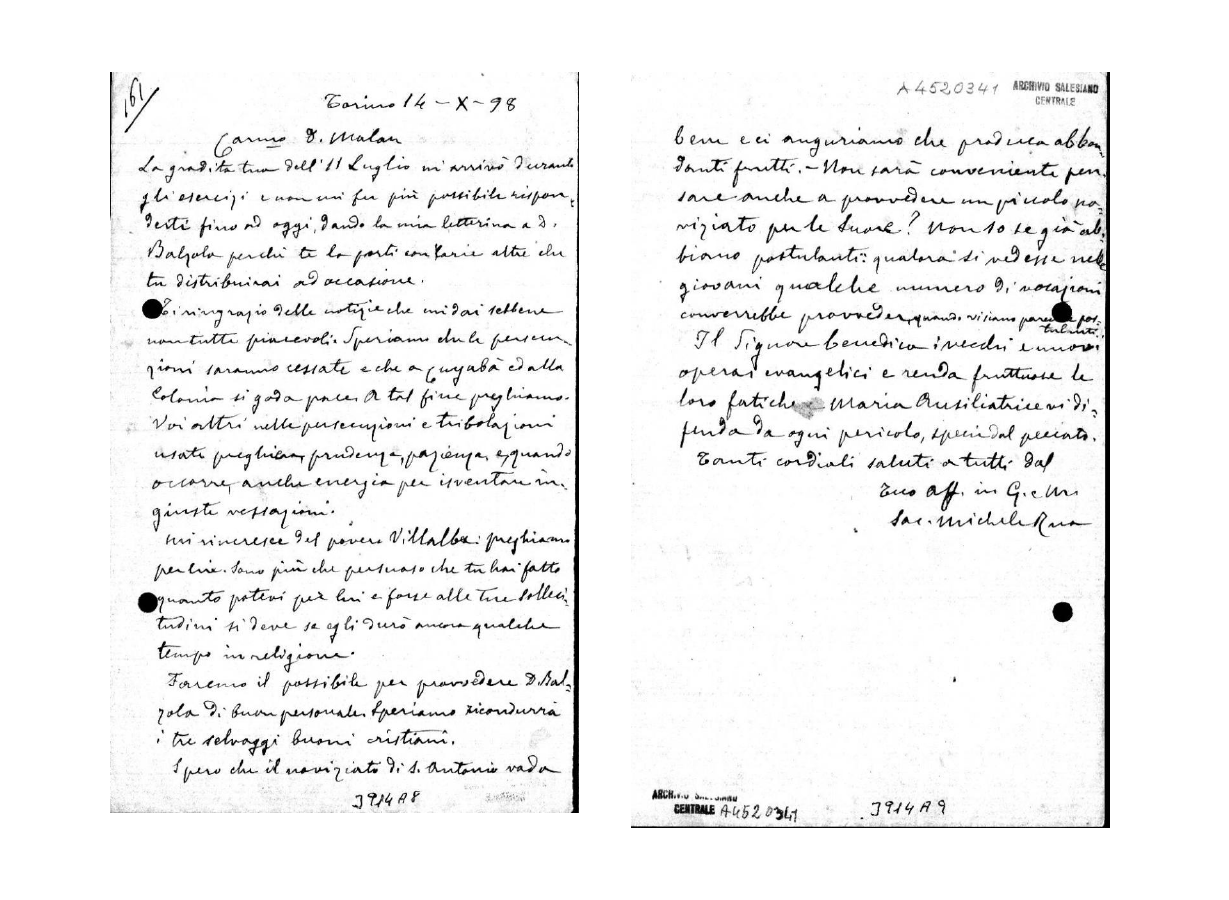 161
Torino 14-X-98
Carmo D. Malan
La gradita tua dell'11 Luglio mi arrivò durante
gli esercizi e non mi fu più possibile rispon-
derti fino ad oggi, dando la mia letterina a D.
Balzola perchè te la porti con parie altre che
tu distribuirai ad occasione.
Ti ringrazio delle notizie che mi dai sebbene
non tutte piacevoli. Speriamo che le persecu-
zioni saranno cessate e che a Cuyabà ed alla
Colonia si goda pace. A tal fine preghiamo.
Voi altri nelle persecuzioni e tribolazioni
usate preghiera, prudenza, pazienza, e, quando
occorre, anche energia per isventare in-
giuste vessazioni.
Mi rincresce del povero Villalba: preghiamo
per lui. Sono più che persuaso che tu hai fatto
quanto potevi per lui e forse alle tue solleci-
tudini si deve se egli durò ancora qualche
tempo in religione.
Faremo il possibile per provvedere D. Bal-
zola di buon personale. Speriamo ricondurrà
i tre selvaggi buoni cristiani.
Spero che il noviziato di S. Antonio vada
J914A8
A4520341
ARCHIVIO SALESIANO
CENTRALE
bene e ci auguriamo che produca abbon-
danti frutti. - Non sarà conveniente pen-
sare anche a provvedere un piccolo no-
viziato per le Suore? Non so se già ab-
biano postulanti: qualora si vedesse nelle
giovani qualche numero di vocazioni
converrebbe provveder, quando vi siano parecchie pos-
tulanti.
Il Signore benedica i vecchi e nuovi
operai evangelici e renda fruttuose le
loro fatiche Maria Ausiliatrice vi di-
fenda da ogni pericolo, specie dal peccato.
Tanti cordiali saluti a tutti dal
Tuo Aff. in G. e M.
Sac. Michele Rua
ARCHIVIO SALESIANO
CENTRALE A4520341
J914A9